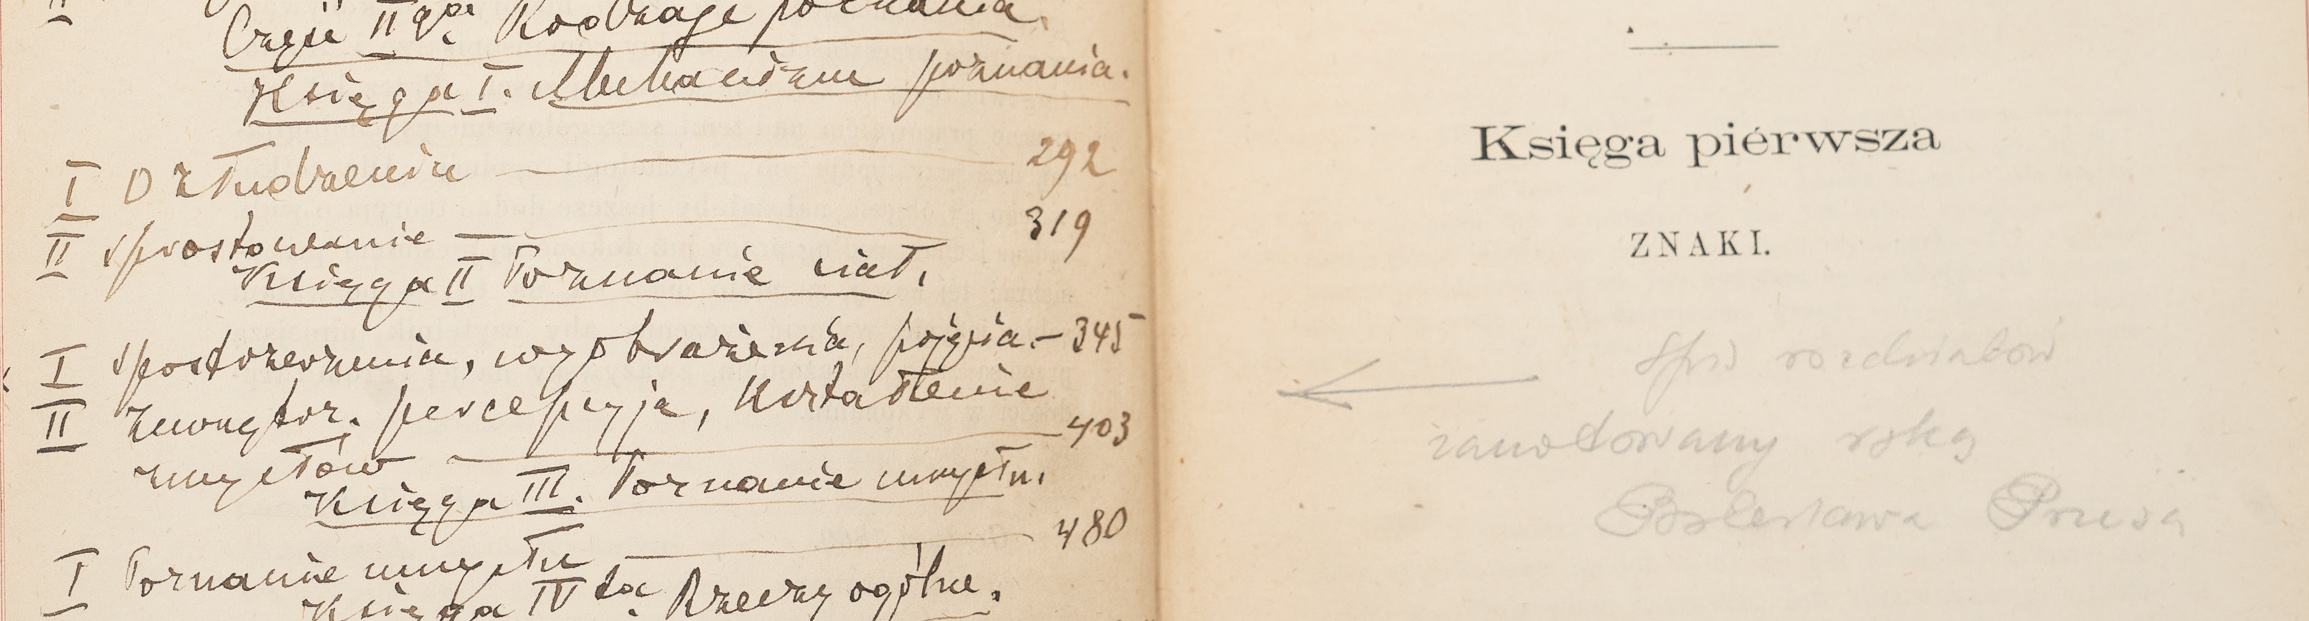 II
Część IIga. Rodzaje poznania.
Księga I. Mechanizm poznania.
I O złudzeniu — 292
II Sprostowanie — 319
Księga II Poznanie ciał.
I Spostrzeżenia, wyobrażenia, pojęcia — 345
II Zewnętrz. percepcyja, Kształcenie
zmysłów — 403
Księga III. Poznanie umysłu.
I Poznanie umysłu — 480
Księga IVta. Rzeczy ogólne.
Księga piérwsza
ZNAKI.
Spis rozdziałów
zanotowany ręką
Bolesława Prusa